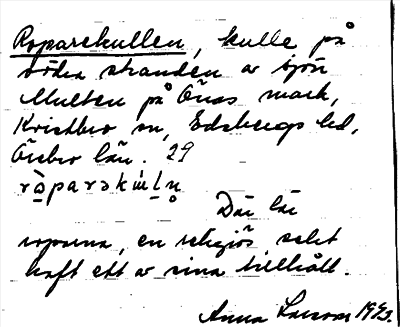 Roparekullen, kulle på
södra stranden av sjön
Multen på Önas mark,
Kristbro sn, Edsbergs hd,
Örebro län. 29
Där lär
roparna, en religiös sekt
haft ett av sina tillhåll.
Anna Larsson 1923.